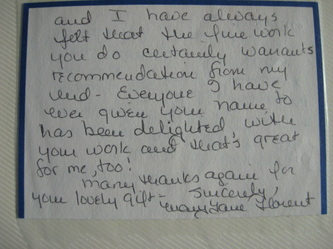 and I have always
felt that the fine work
you do certainly warrants
recommendation from my
end - Everyone I have
ever given your name to
has been delighted with
your work and that's great
for me, too!
Many thanks again for
your lovely gift - Sincerely,
Mary Jane Florent